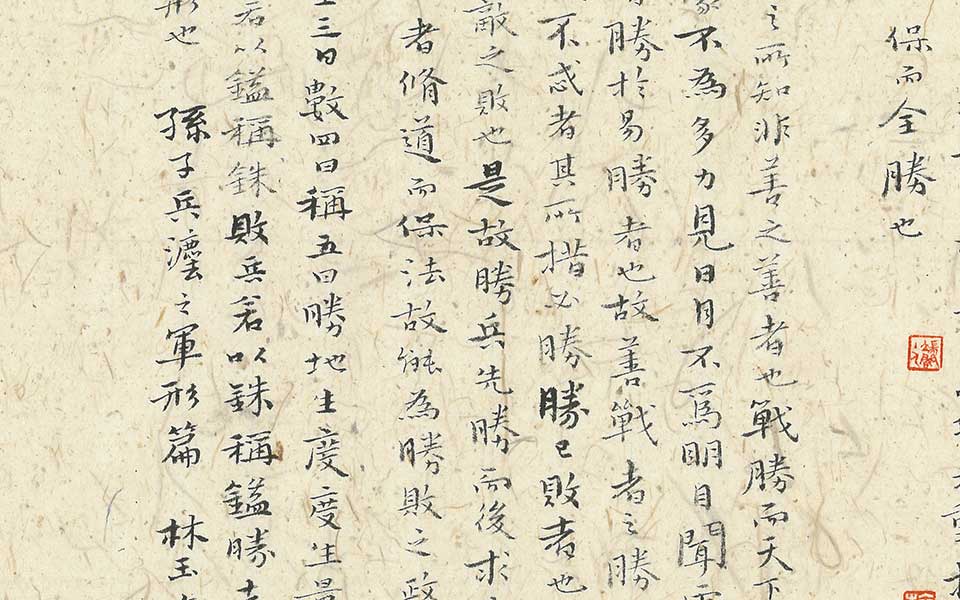 保而全勝也
之所知非善之善者也戰勝而天下
不為多力見日月不爲明目聞
勝於易勝者也故善戰者之勝
不忒者其所措必勝勝已敗者也
敵之敗也是故勝兵先勝而後求
者脩道而保法故能為勝敗之政
三曰數四曰稱五曰勝地生度度生量
若以鎰稱銖敗兵若以銖稱鎰勝
形也 孫子兵灋之軍形篇 林玉